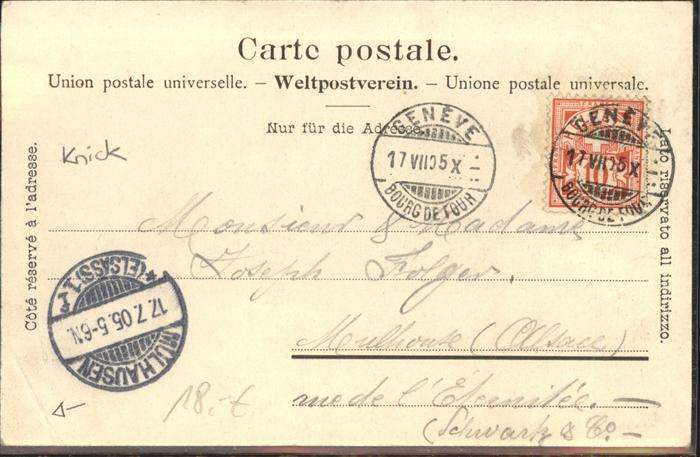 Carte postale.
Union postale universelle. – Weltpostverein. – Unione postale universale.
Nur für die Adresse.
Côté réservé à l'adresse.
Lato riservato all indirizzo.
Knick
GENÈVE
17 VII 05 X
BOURG DE FOUR
GENÈVE
17 VII 05 X
BOURG DE FOUR
10
Monsieur & Madame
Joseph Folger,
Mulhouse (Alsace)
rue de l'Eternitée. —
(Schwartz & Co –
MÜLHAUSEN
17.7.05. 5-6N.
*(ELSASS) 1
18.-€